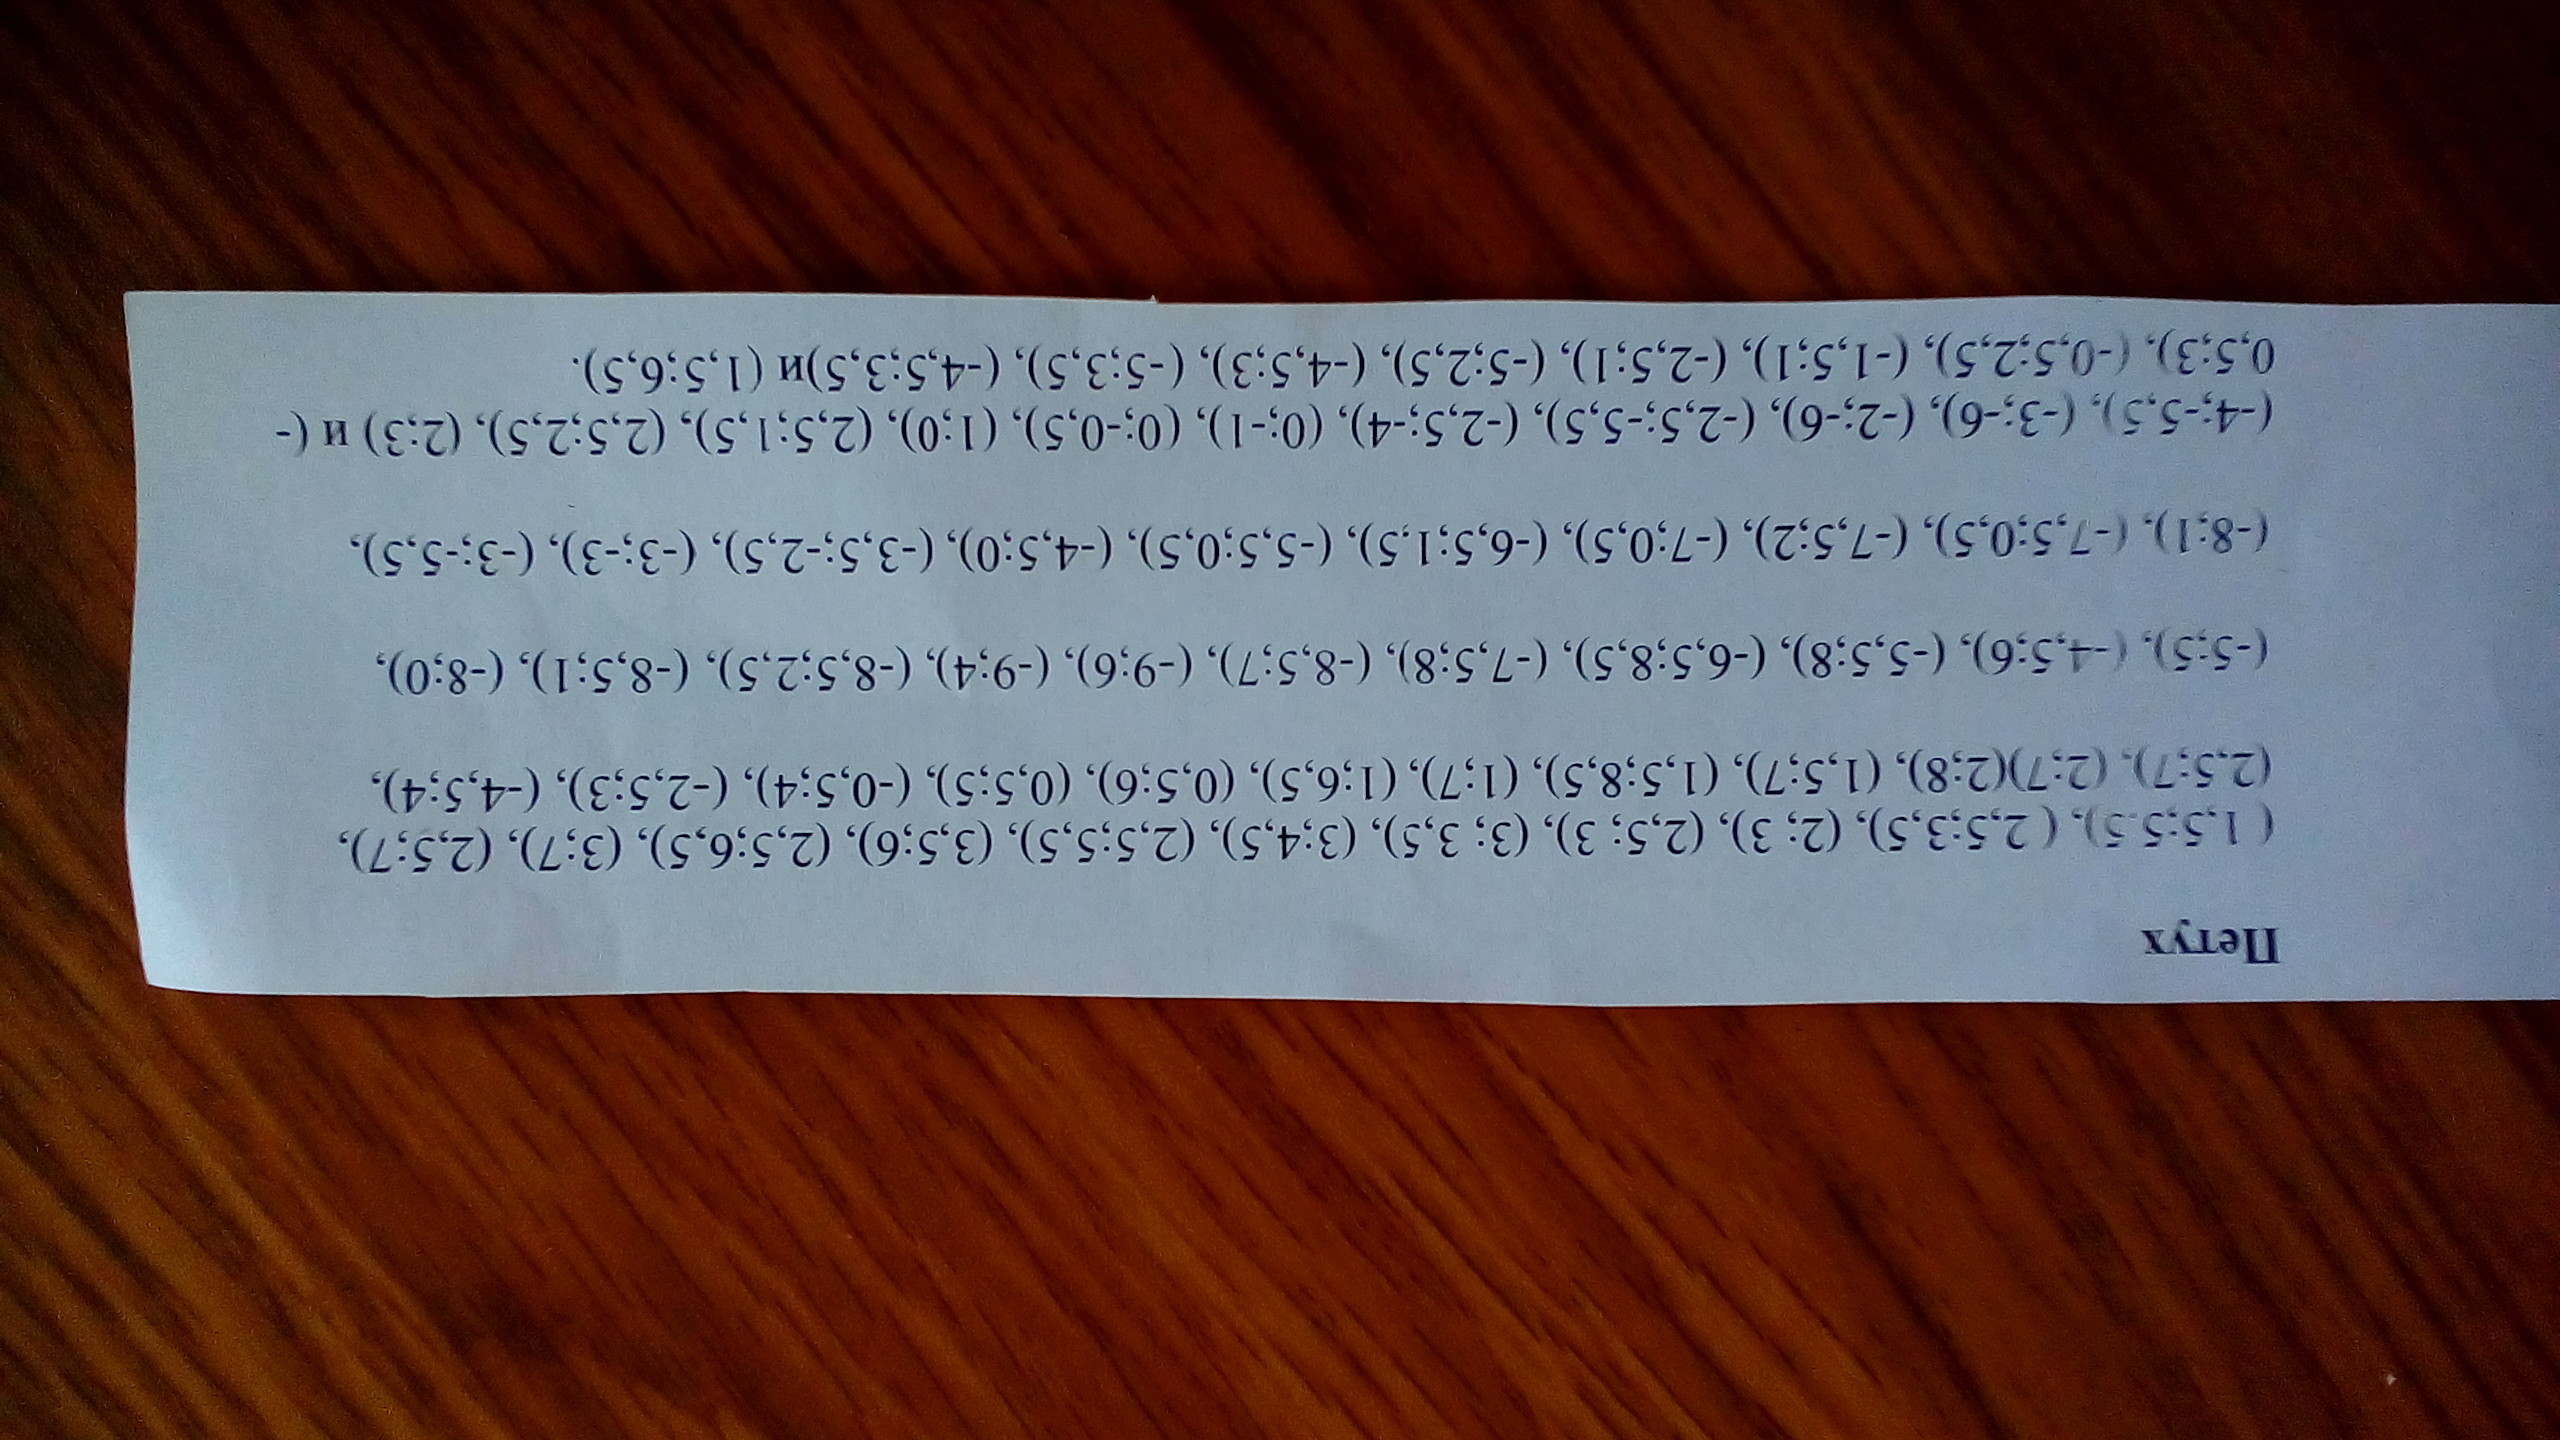 Петух
( 1,5;5.5), ( 2,5;3,5), (2; 3), (2,5; 3), (3; 3,5), (3;4,5), (2,5;5,5), (3,5;6), (2,5;6,5), (3;7), (2,5;7),
(2,5;7), (2;7)(2;8), (1,5;7), (1,5;8,5), (1;7), (1;6,5), (0,5;6), (0,5;5), (-0,5;4), (-2,5;3), (-4,5;4),
(-5;5), (-4,5;6), (-5,5;8), (-6,5;8,5), (-7,5;8), (-8,5;7), (-9;6), (-9;4), (-8,5;2,5), (-8,5;1), (-8;0),
(-8;1), (-7,5;0,5), (-7,5;2), (-7;0,5), (-6,5;1,5), (-5,5;0,5), (-4,5;0), (-3,5;-2,5), (-3;-3), (-3;-5,5),
(-4;-5,5), (-3;-6), (-2;-6), (-2,5;-5,5), (-2,5;-4), (0;-1), (0;-0,5), (1;0), (2,5;1,5), (2,5;2,5), (2;3) и (-
0,5;3), (-0,5;2,5), (-1,5;1), (-2,5;1), (-5;2,5), (-4,5;3), (-5;3,5), (-4,5;3,5)и (1,5;6,5).